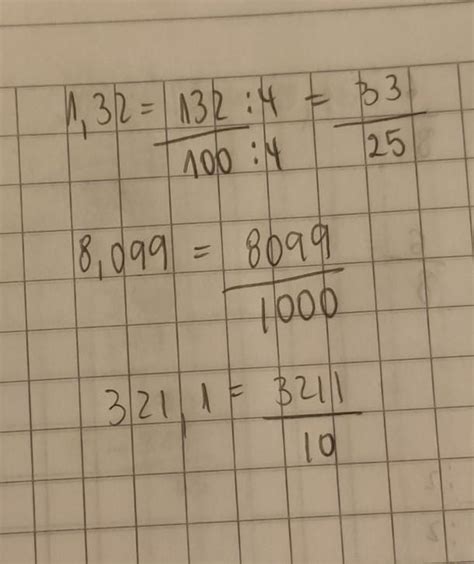 1,32 = 132 :4 / 100 :4 = 33 / 25
8,099 = 8099 / 1000
321,1 = 3211 / 10